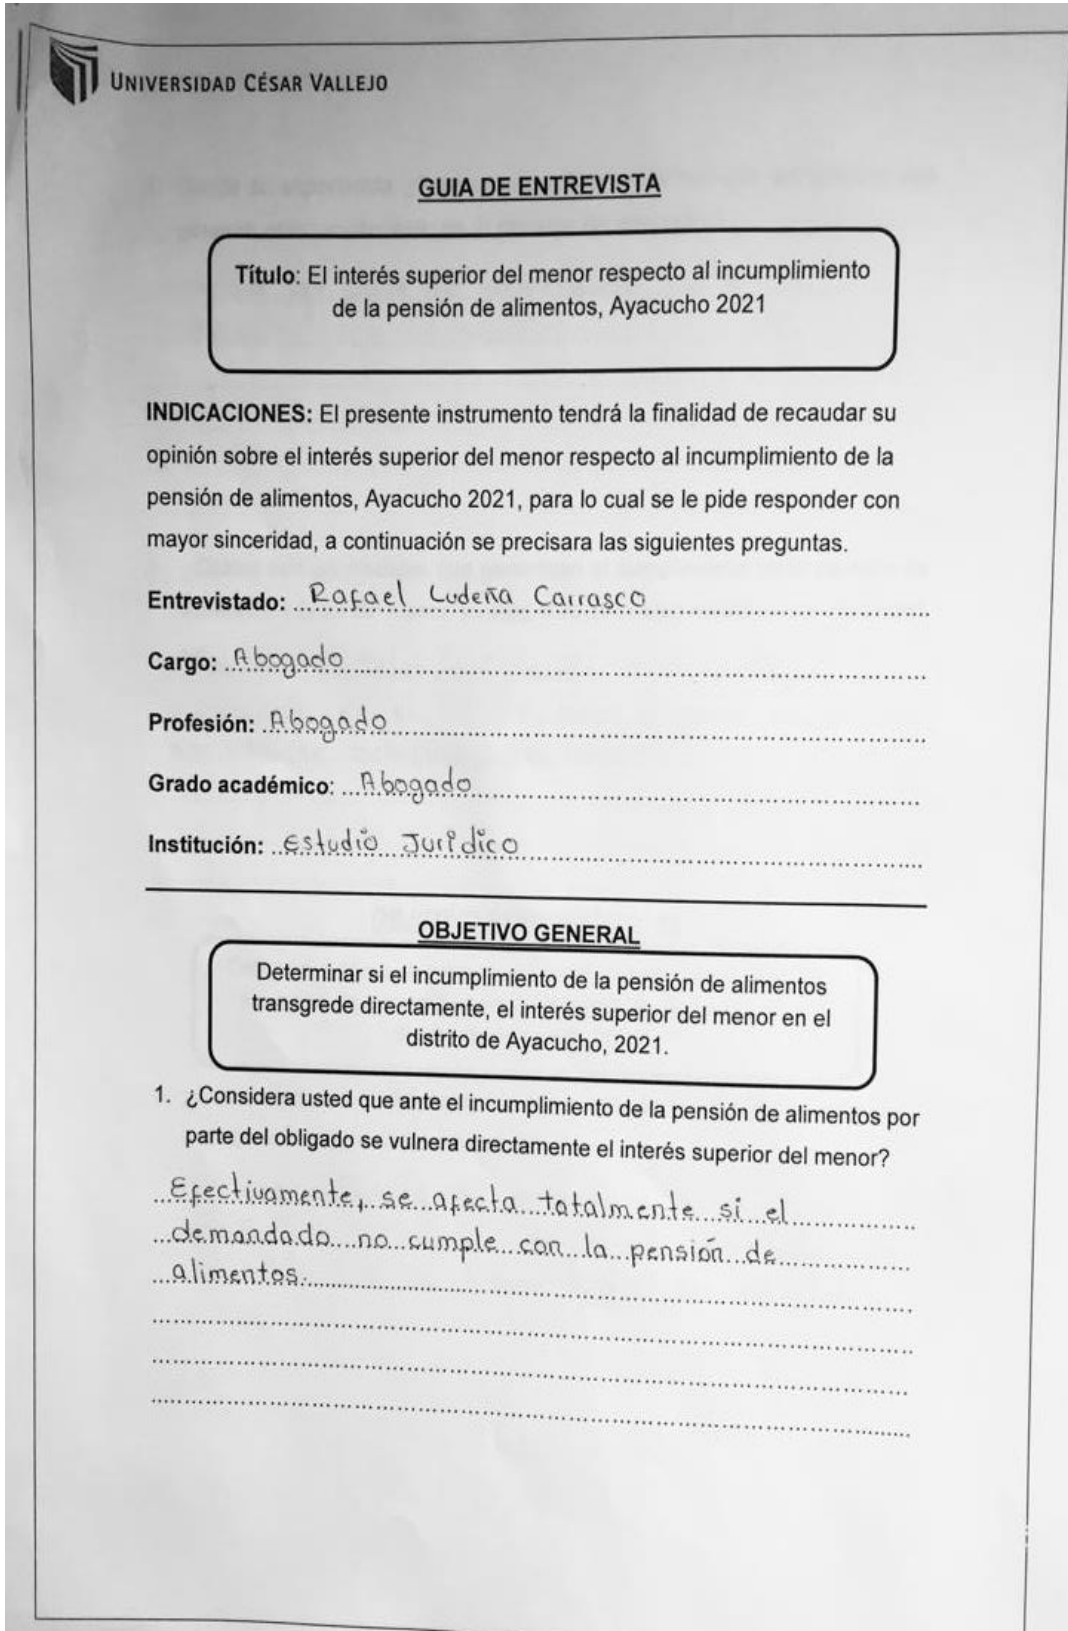 UNIVERSIDAD CÉSAR VALLEJO
GUIA DE ENTREVISTA
Título: El interés superior del menor respecto al incumplimiento
de la pensión de alimentos, Ayacucho 2021
INDICACIONES: El presente instrumento tendrá la finalidad de recaudar su
opinión sobre el interés superior del menor respecto al incumplimiento de la
pensión de alimentos, Ayacucho 2021, para lo cual se le pide responder con
mayor sinceridad, a continuación se precisara las siguientes preguntas.
Entrevistado: Rafael Ludeña Carrasco
Cargo: Abogado
Profesión: Abogado
Grado académico: Abogado
Institución: Estudio Jurídico
OBJETIVO GENERAL
Determinar si el incumplimiento de la pensión de alimentos
transgrede directamente, el interés superior del menor en el
distrito de Ayacucho, 2021.
1. ¿Considera usted que ante el incumplimiento de la pensión de alimentos por
parte del obligado se vulnera directamente el interés superior del menor?
Efectivamente, se afecta totalmente si el
demandado no cumple con la pensión de
alimentos.